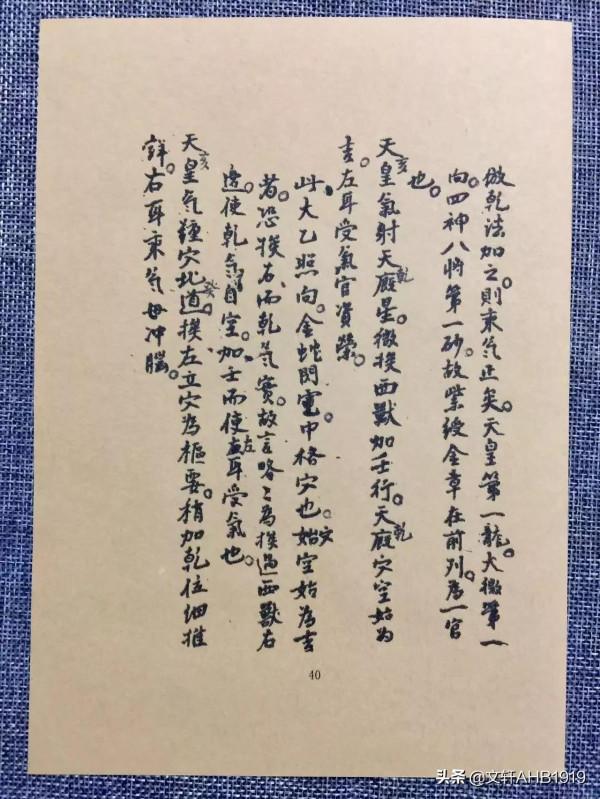 倣乾法加之。則來氣正矣。天皇第一龍。大微第一
向。四神八將第一砂。故紫綬金章在前列。為一官
也。
天皇亥氣射天廄乾星。微挨西獸加壬行。天廄乾穴空始為
吉。左耳受氣官資榮。
此大乙照向。金蛇閃電中格穴也。穴始空始為吉
者。恐挨右而乾氣實。故言略々為挨過西獸右
邊。使乾氣自空。加壬而使左耳受氣也。
天皇亥氣鍾穴北道癸。挨左立穴為樞要。稍加乾位細推
詳。右耳乘氣毋冲腦。
40
头条 @文轩AHB1919